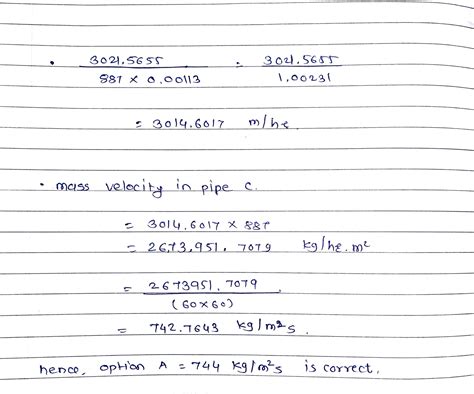 • 3021.5655 = 3021.5655
887 × 0.00113 1.00231
= 3014.6017 m/hr.
• mass velocity in pipe C.
= 3014.6017 × 887
= 2673,951.7079 kg/hr.m²
= 2673951.7079
(60×60)
= 742.7643 kg/m²s.
hence, option A = 744 kg/m²s is correct.